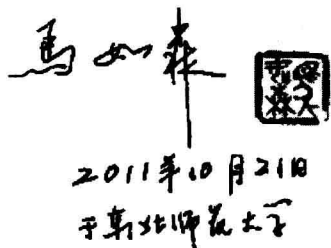 馬如森
2011年10月21日
于东北师范大学